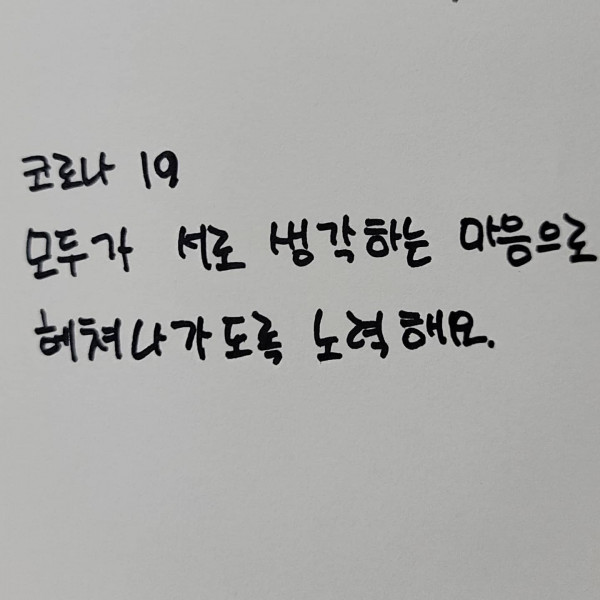 코로나 19
모두가 서로 생각하는 마음으로
헤쳐나가도록 노력해요.